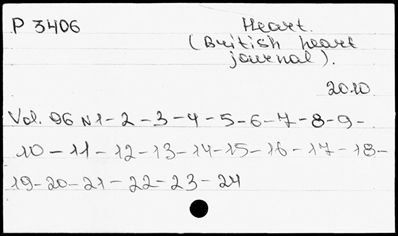 P 3406
Heart.
(British heart
journal).
2010
Vol. 96 N1-2-3-4-5-6-7-8-9-
10-11-12-13-14-15-16-17-18-
19-20-21-22-23-24